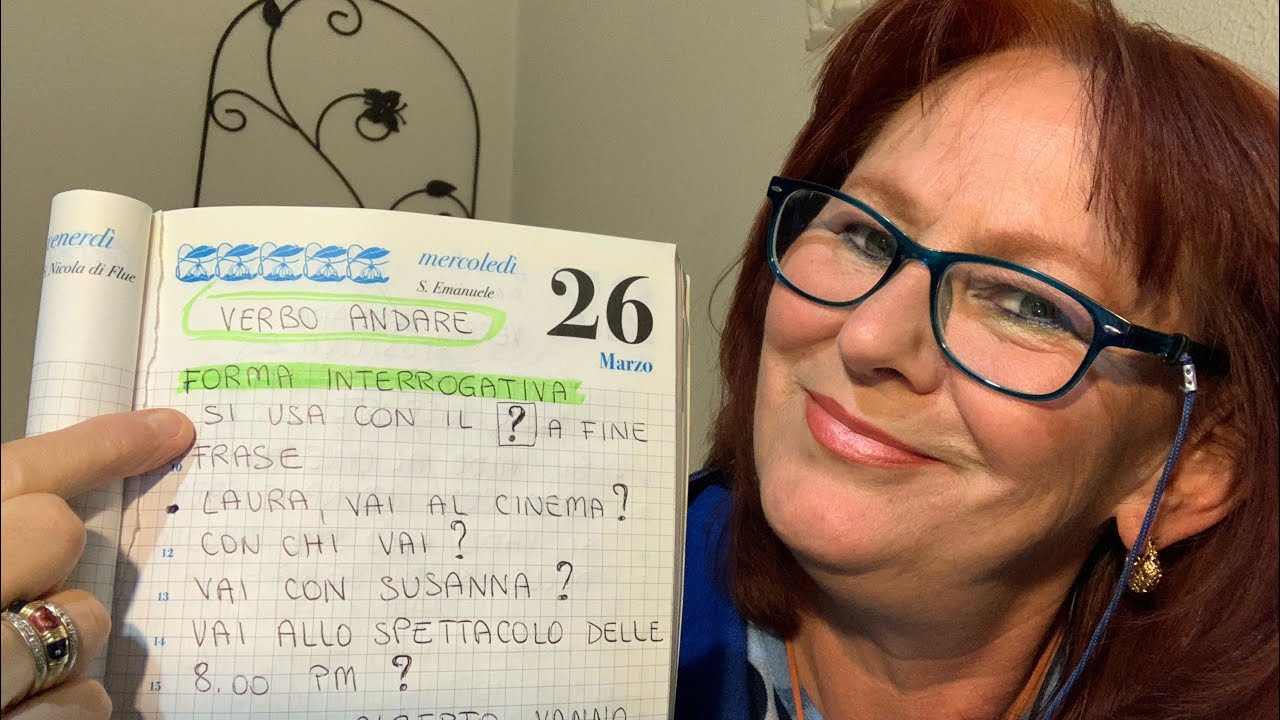 venerdì
S. Nicola di Flue
mercoledì
S. Emanuele
26
Marzo
VERBO ANDARE
FORMA INTERROGATIVA
SI USA CON IL ? A FINE
10 FRASE
• LAURA, VAI AL CINEMA?
12 CON CHI VAI?
13 VAI CON SUSANNA?
14 VAI ALLO SPETTACOLO DELLE
15 8.00 PM ?
ALBERTO VANNO